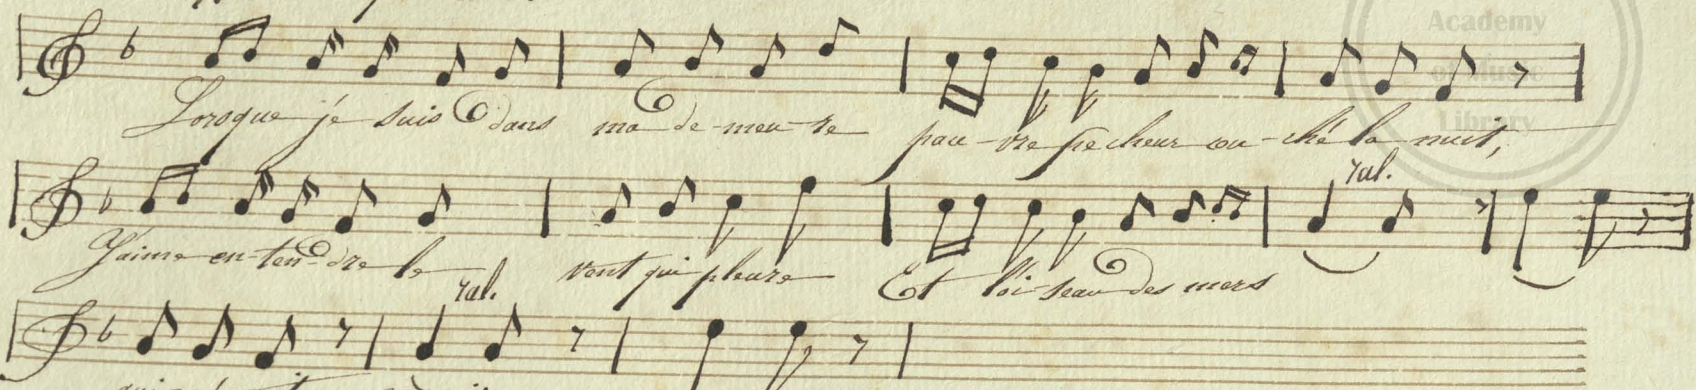 Academy
of Music
Library
Lorsque je suis dans ma de-meu-re pau-vre pecheur ou-ché la nuit,
ral.
J'aime en-ten-dre le vent qui pleure Et l'oi-seau des mers
ral.